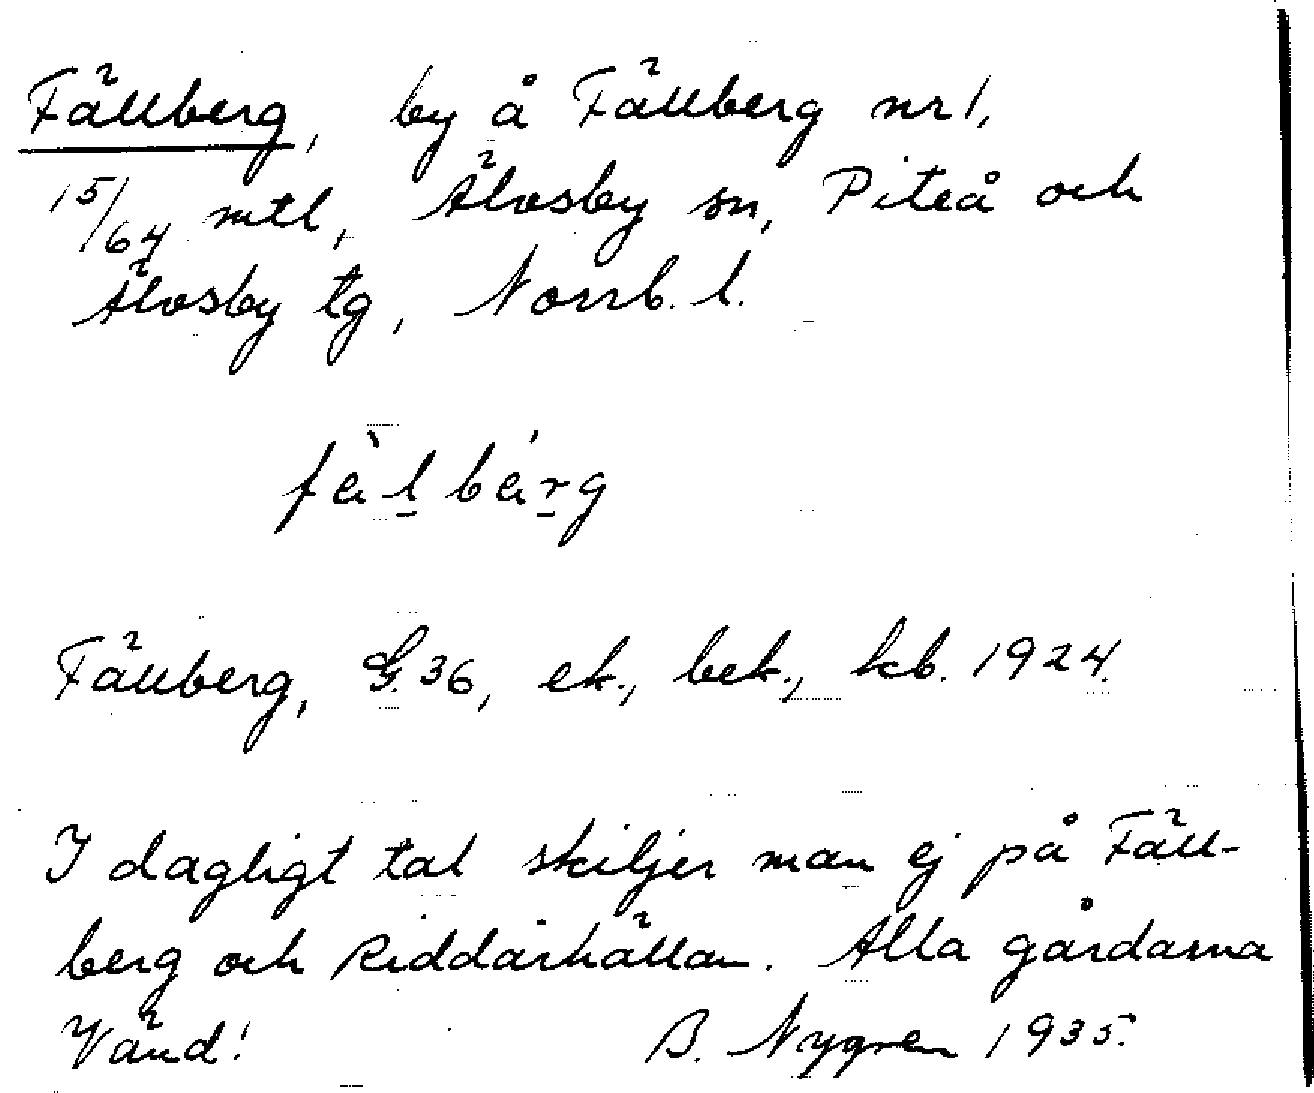 Fällberg, by å Fällberg nr 1,
15/64 mtl, Älvsby sn, Piteå och
Älvsby tg, Norrb. l.
fä̀lbärg
Fällberg, G. 36, ek., bek., kb. 1924.
I dagligt tal skiljer man ej på Fäll-
berg och Riddarhällan. Alla gårdarna
Vänd! B. Nygren 1935.